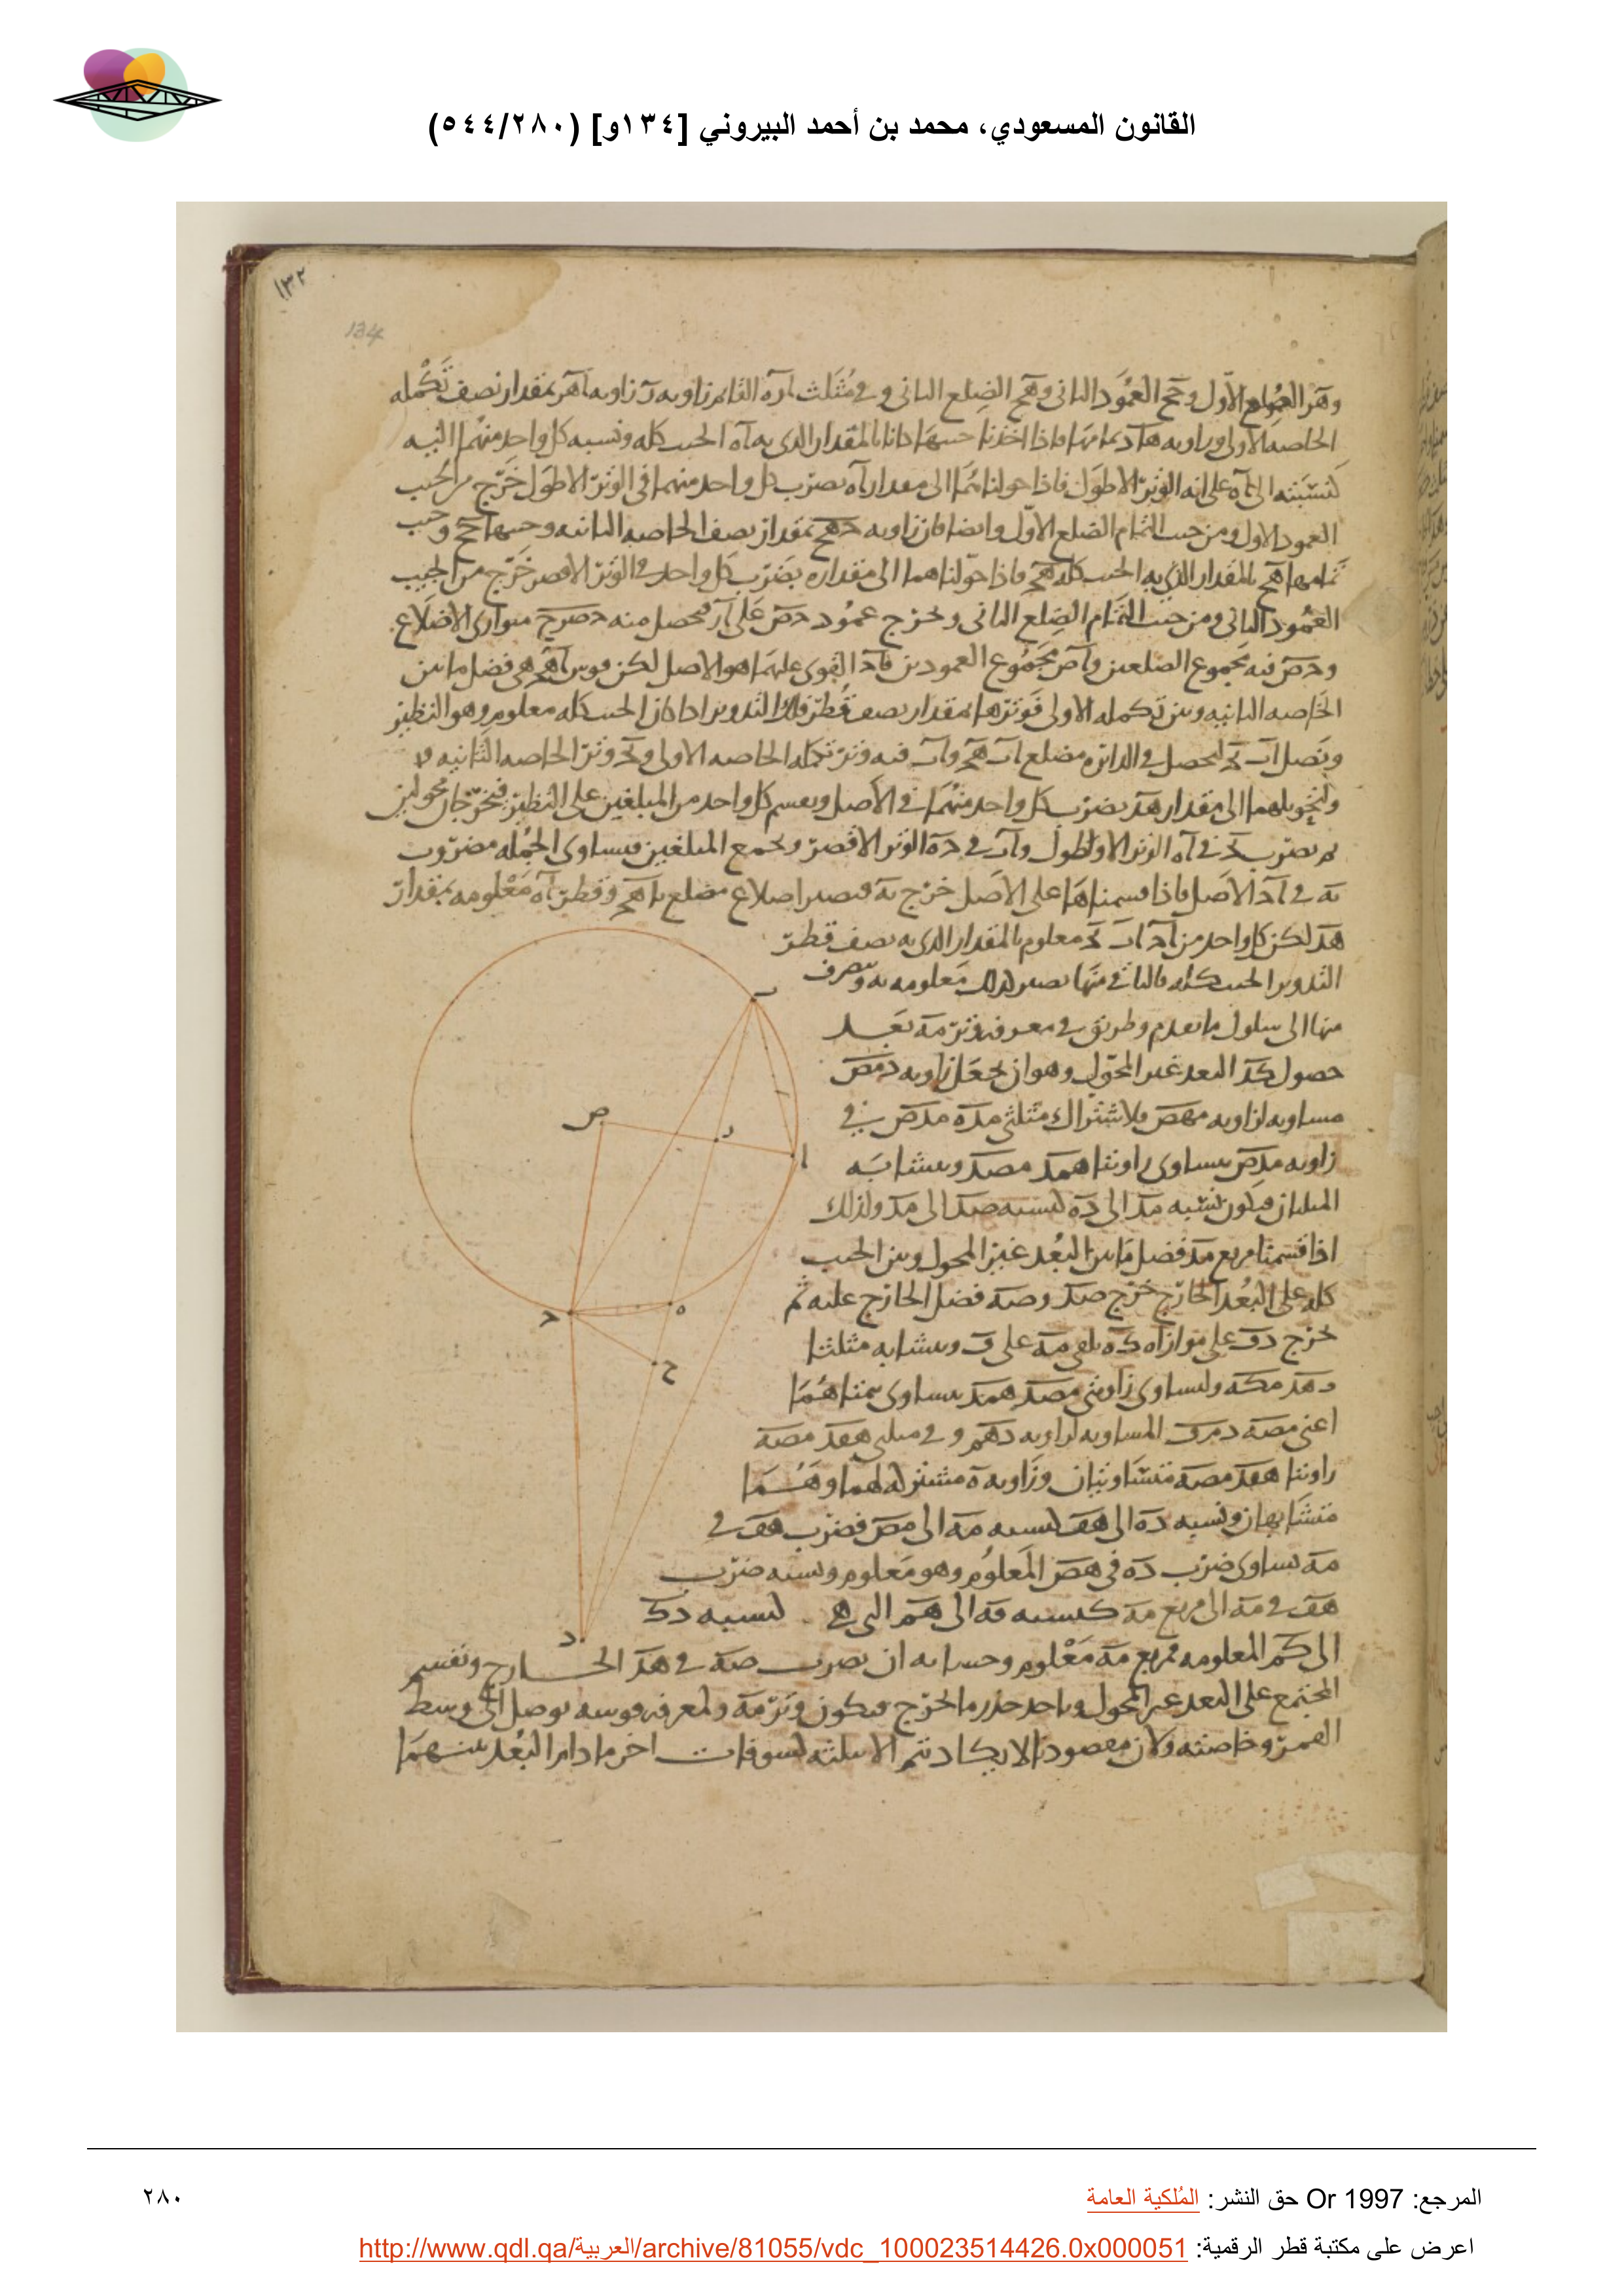 القانون المسعودي، محمد بن أحمد البيروني [١٣٤و] (٥٤٤/٢٨٠)
١٣٢
134
وهر الضلع الأول وحج العمود الثانى وهج الضلع الثانى و فى مثلث اره القائم زاويه ر زاويه اهر بمقدار نصف تكمله
الخاصه الاولى وزاويه هار تمامها فاذا اخذنا جيبهما كانا بالمقدار الذى به اه الجيب كله ونسبه كل واحد منهما اليه
كنسبته الى اه على انه الوتر الاطول فاذا حولناهما الى مقدار اه بضرب كل واحد منهما فى الوتر الاطول خرج من الجيب
العمود الاول ومن جيب التمام الضلع الاول وايضا فان زاويه حهج بمقدار نصف الخاصه الثانيه وجيبها حج وجيب
تمامها هج بالمقدار الذى به الجيب كله هح فاذا حولناهما الى مقداره بضرب كل واحد فى الوتر الاقصر خرج من الجيب
العمود الثانى ومن جيب التمام الضلع الثانى ونخرج عمود حص على ار فيحصل منه حصرج متوازى الاضلاع
وحص فيه مجموع الضلعين واص مجموع العمودين فاح القوى عليهما هو الاصل لكن قوس اهح هى فضل ما بين
الخاصه الثانيه وبين تكمله الاولى فوترها بمقدار نصف قطر فلك التدوير اذا كان الجيب كله معلوم وهو النظير
ونصل اب بح ليحصل فى الدائره مضلع اب هح واب فيه وتر تكمله الخاصه الاولى وبح وتر الخاصه الثانيه
ولتحويلهما الى مقدار هد نضرب كل واحد منهما فى الاصل ونقسم كل واحد من المبلغين على النظير فيخرجان محولين
ثم نضرب بح فى اه الوتر الاطول واب فى حه الوتر الاقصر ونجمع المبلغين فيساوى الجمله مضروب
به فى اح الاصل فاذا قسمناها على الاصل خرج به فيصير اضلاع مضلع باهح وقطر اه معلومه بمقدار
هد لكن كل واحد من اح اب بح معلوم بالمقدار الذى به نصف قطر
التدوير الجيب كله فالباقى منها يصير كذلك معلومه به ونتصرف
منها الى سلوك ما تقدم وطريق فى معرفه وتر مه بعد
حصول كد البعد غير المحول وهو ان نجعل زاويه دمص
مساويه لزاويه مهص فلاشتراك مثلثى مده مدص فى
زاويه مدص يساوى زاويتا همد مصد ويتشابه
المثلثان فيكون نسبه مد الى ده كنسبه صد الى مد ولذلك
اذا قسمنا مربع مد فضل ما بين البعد غير المحول وبين الجيب
كله على البعد الخارج خرج صد وصه فضل الخارج عليه ثم
نخرج دف على موازاه كه يلقى مه على ف ويتشابه مثلثا
اعنى مصه دمف المساويه لزاويه دهم و فى مثلثى هفد مصه
زاويتا هفد مصه متساويتان وزاويه ه مشتركه لهما وهما
متشابهان ونسبه ده الى هف كنسبه مه الى مص فضرب هف فى
مه يساوى ضرب ده فى هص المعلوم وهو معلوم ونسبه ضرب
هف فى مه الى مربع مه كنسبه فه الى هم التى هى كنسبه دك
الى كم المعلومه فمربع مه معلوم وحسابه ان نضرب صه فى هد الخارج ونقسم
المجتمع على البعد غير المحول وناخذ جذر ما خرج فيكون وتر مه ولمعرفه قوسه نوصل الى وسط
القمر وخاصته ولان مقصودنا لا يكاد يتم الا بثلثه كسوفات اخر ما دام البعد بينهما
ب
ص
ر
ا
ه
ح
ج
د
المرجع: Or 1997 حق النشر: المُلكية العامة
٢٨٠
اعرض على مكتبة قطر الرقمية: http://www.qdl.qa/العربية/archive/81055/vdc_100023514426.0x000051